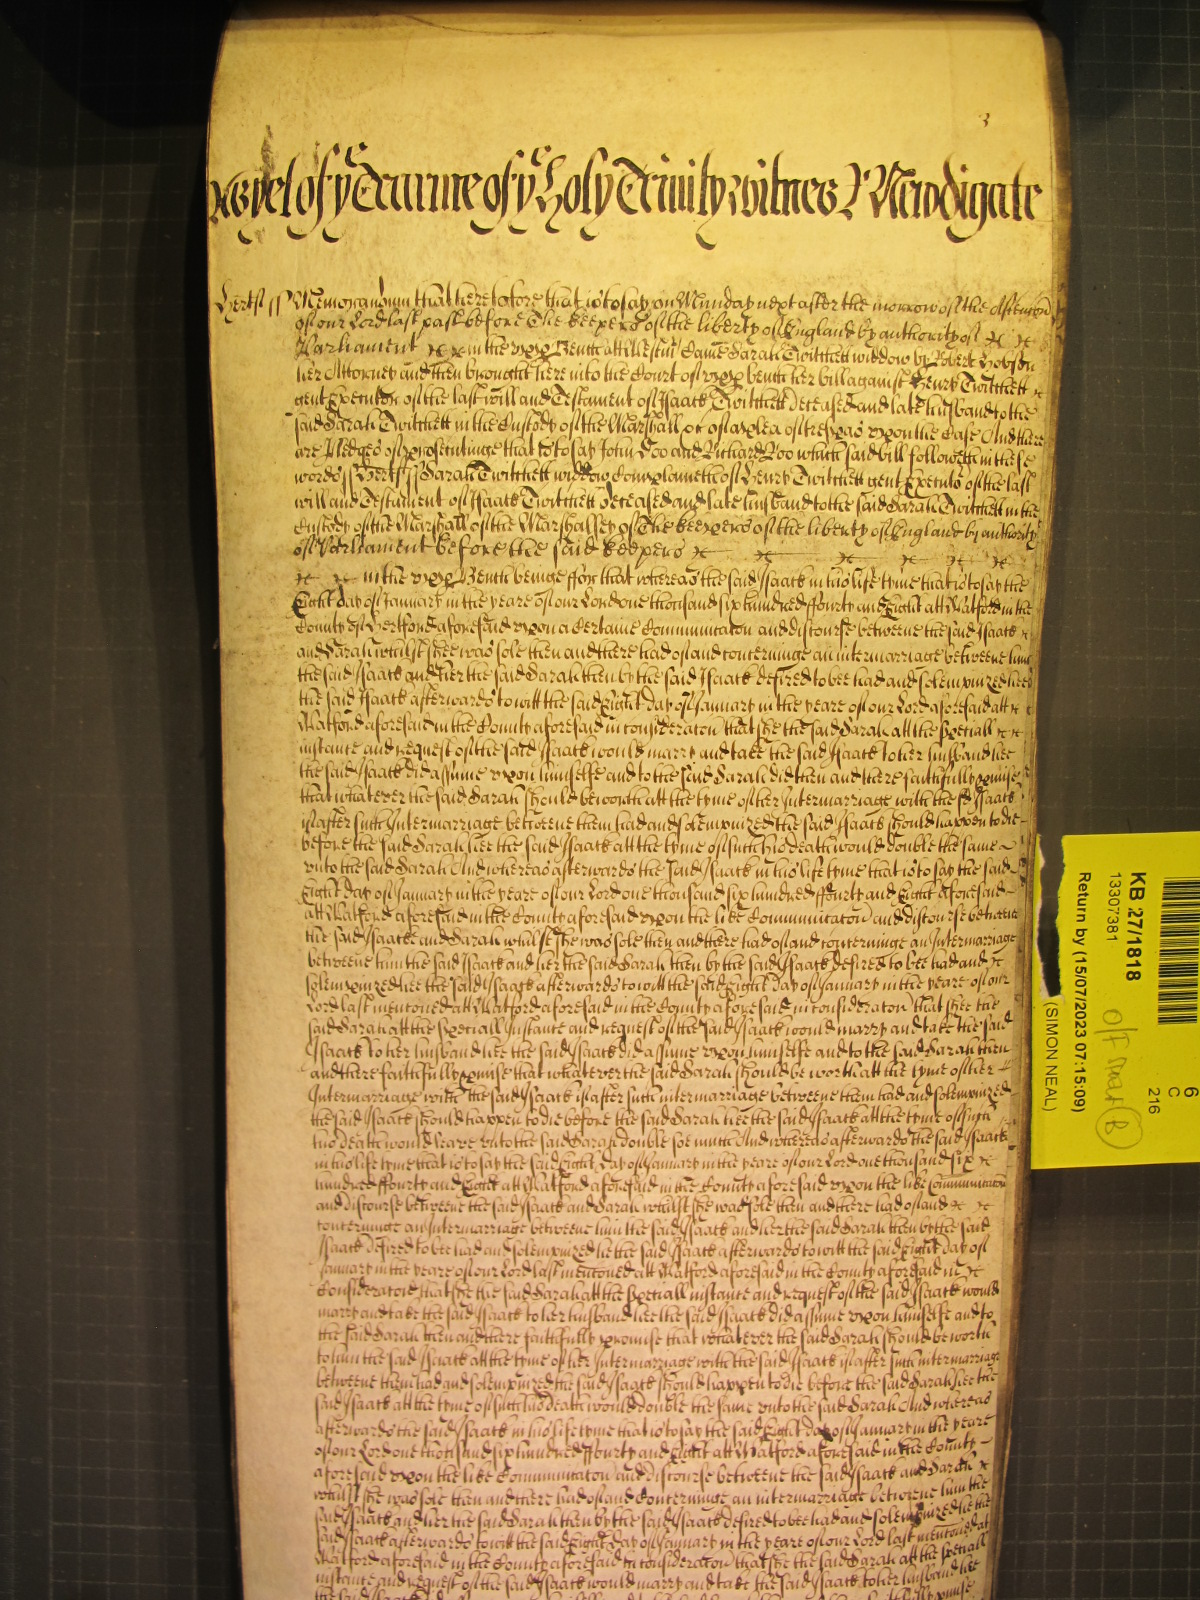 3
yet of ye Tearme of ye Holy Trinity witnes R Newdigate
Hertf ss Memorandum that heretofore that is to say on Munday next after the morrow of the Ascention
of our Lord last past before The keepers of the liberty of England by authority of
Parliament in the upper Bench att Westmr Came Sarah Twitchett widdow by Robert Hobson
her Attorney and then brought here into the Court of upper bench her bill against Henry Twitchett
gent Executor of the last will and Testament of Isaack Twitchett deceased and late husband to the
said Sarah Twitchett in the Custody of the Marshall &c of a plea of trespas upon the Case And there
are Pledges of prosecutinge that is to say John Doo and Richard Roo which said bill followeth in these
words ss Hertf ss Sarah Twitchett widdow Complaineth of Henry Twitchett gent Executor of the last
will and Testament of Isaack Twitchett deceased and late husband to the said Sarah Twitchett in the
Custody of the Marshall of the Marshallsey of The keepers of the liberty of England by authority
of Parliament before the said keepers
in the upper Bench beinge ffor that whereas the said Isaack in his life tyme that is to say the
Eight day of January in the yeare of our Lord one thousand six hundred ffourty and Eight att Watford in the
County of Hertford aforesaid upon a Certaine Communicacon and discourse betweene the said Isaack
and Sarah whilst shee was sole then and there had of and concerninge an intermarriage betweene him
the said Isaack and her the said Sarah then by the said Isaack desired to bee had and solempnized hee
the said Isaack afterwards to witt the said Eight day of January in the yeare of our Lord aforesaid att
Watford aforesaid in the County aforesaid in consideracon that she the said Sarah att the speciall
instance and request of the said Isaack would marry and take the said Isaack to her husband hee
the said Isaack did assume upon himselfe and to the said Sarah did then and there faithfully promise
that whatever the said Sarah should be worth att the tyme of her Intermarriage with the sd Isaack
if after such Intermarriage betweene them had and solempnized the said Isaack should happen to die
before the said Sarah hee the said Isaack att the tyme of such his death would double the same
unto the said Sarah And whereas afterwards the said Isaack in his life tyme that is to say the said
Eight day of January in the yeare of our Lord one thousand six hundred ffourty and Eight aforesaid
att Watford aforesaid in the County aforesaid upon the like Communicacon and discourse betweene
the said Isaacke and Sarah whilst she was sole then and there had of and concerninge an Intermarriage
betweene him the said Isaack and her the said Sarah then by the said Isaack desired to bee had and
solempnized hee the said Isaack afterwards to witt the said Eight day of January in the yeare of our
Lord last mentioned att Watford aforesaid in the County aforesaid in consideracon that shee the
said Sarah att the speciall Instance and request of the said Isaack would marry and take the said
Isaack to her husband hee the said Isaack did assume upon himselfe and to the said Sarah then
and there faithfully promise that whatever the said Sarah should be worth att the tyme of her
Intermarriage with the said Isaack if after such intermarriage betweene them had and solempnized
the said Isaack should happen to die before the said Sarah hee the said Isaack att the tyme of such
his death would leave unto the said Sarah double soe much And whereas afterwards the said Isaack
in his life tyme that is to say the said Eight day of January in the yeare of our Lord one thousand six
hundred ffourty and Eight att Watford aforesaid in the County aforesaid upon the like Communicacon
and discourse betweene the said Isaack and Sarah whilst she was sole then and there had of and
concerninge an Intermarriage betweene him the said Isaack and her the said Sarah then by the said
Isaack desired to bee had and solempnized hee the said Isaack afterwards to witt the said Eight day of
January in the yeare of our Lord last mentioned att Watford aforesaid in the County aforesaid in
Consideracon that she the said Sarah att the speciall instance and request of the said Isaack would
marry and take the said Isaack to her husband hee the said Isaack did assume upon himselfe and to
the said Sarah then and there faithfully promise that whatever the said Sarah should be worth
to him the said Isaack att the tyme of her Intermarriage with the said Isaack if after such intermarriage
betweene them had and solempnized the said Isaack should happen to die before the said Sarah hee the
said Isaack att the tyme of such his death would double the same unto the said Sarah And whereas
afterwards the said Isaack in his life tyme that is to say the said Eight day of January in the yeare
of our Lord one thousand six hundred ffourty and Eight att Watford aforesaid in the County
aforesaid upon the like Communicacon and discourse betweene the said Isaack and Sarah
whilst she was sole then and there had of and Concerninge an intermarriage betweene him the
said Isaack and her the said Sarah then by the said Isaack desired to bee had and solempnized hee the
said Isaack afterwards to witt the said Eight day of January in the yeare of our Lord last mentioned att
Watford aforesaid in the County aforesaid in consideracon that she the said Sarah att the speciall
instance and request of the said Isaack would marry and take the said Isaack to her husband hee
KB 27/1818
13307381
Return by (15/07/2023 07:15:09)
(SIMON NEAL)
6
C
216